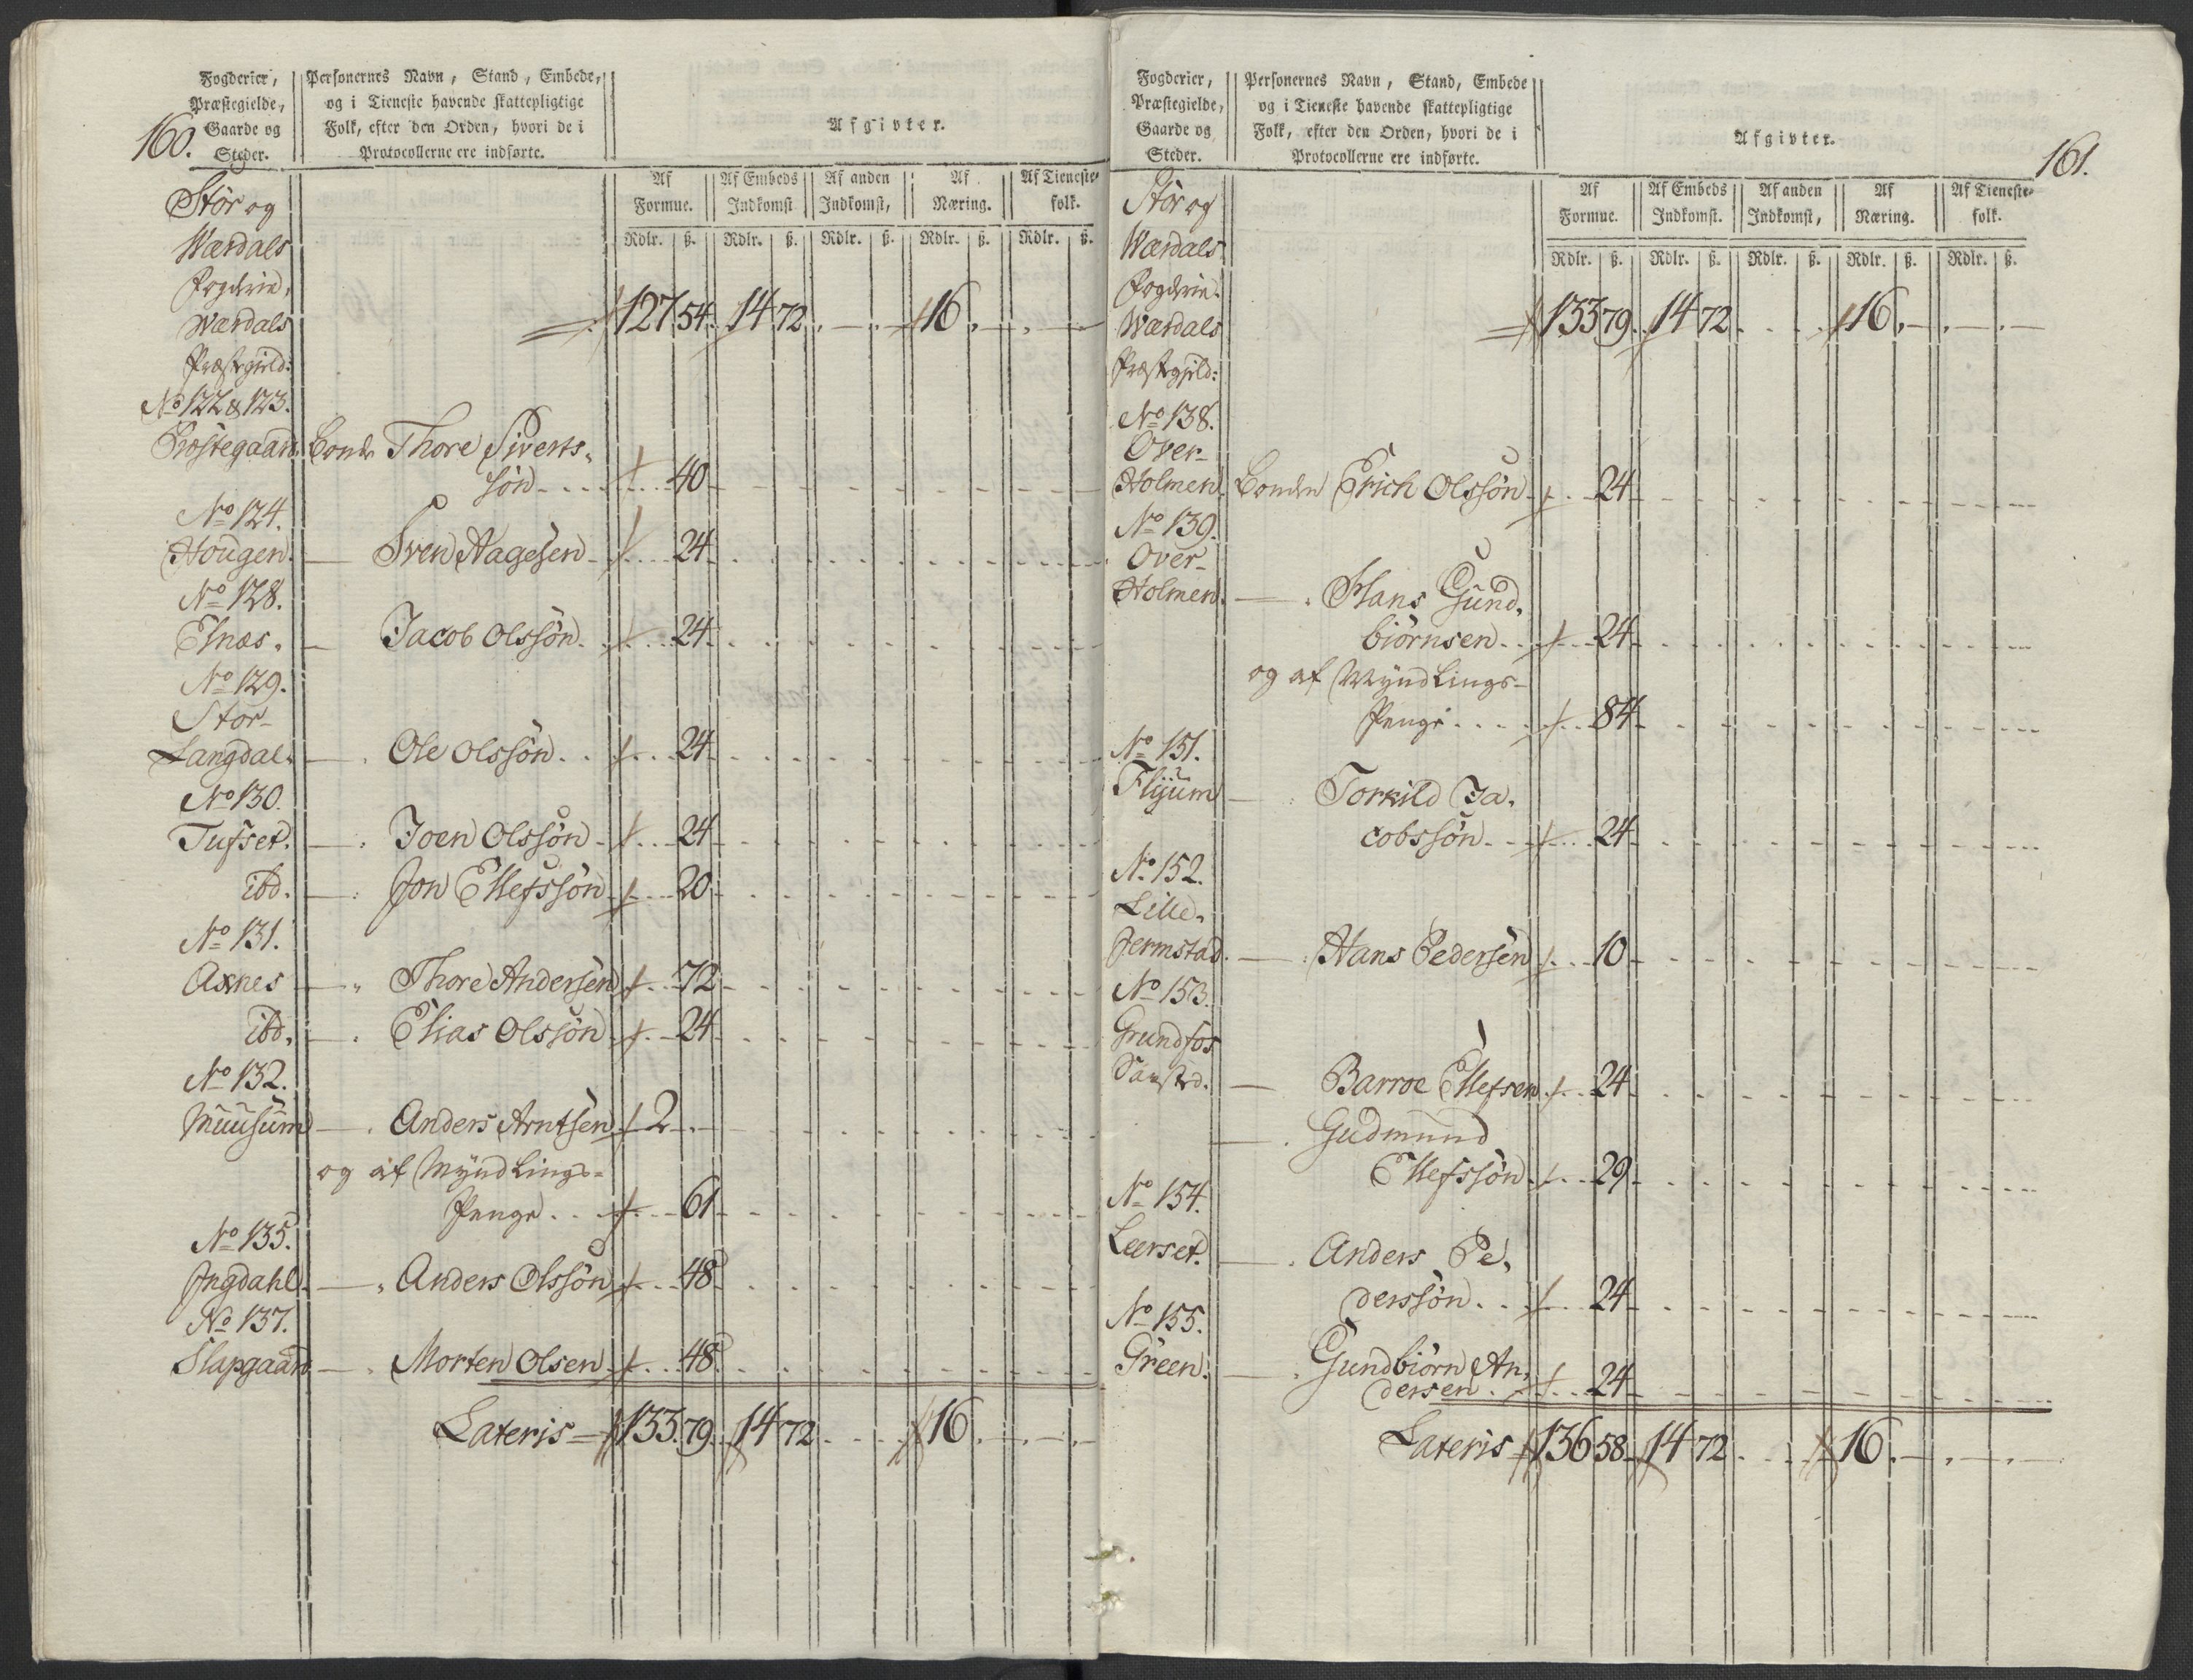 160.
Fogderier,
Præstegielde,
Gaarde og
Steder.
Personernes Navn, Stand, Embede,
og i Tieneste havende skattepligtige
Folk, efter den Orden, hvori de i
Protocollerne ere indførte.
Afgivter.
Af Formue. Af Embeds Indkomst Af anden Indkomst, Af Næring. Af Tieneste-folk.
Rdlr. ß. Rdlr. ß. Rdlr. ß. Rdlr. ß. Rdlr. ß.
Stör og
Wærdals
Fogderie,
Wærdals 127 54. 14 72 . — . — 16 . — . —
Præstegield:
No 122 & 123.
Bonde Thore Siverts-
søn 40
No 124.
Hougen. — Sven Aagesen 24
No 128.
Elnæs. — Jacob Olssön 24
No 129.
Stor-
Langdal. — Ole Olssön 24
No 130.
Tufset. — Joen Olssön 24
ibd. — Jon Ellefssön 20
No 131.
Axnes — Thore Andersen 72
ibd. — Elias Olssön 24
No 132.
Muusum — Anders Arntsen 2 .
og af Myndlings-
Penge 61
No 135.
Ingdahl. — Anders Olssön 48
No 137.
Slapgaard — Morten Olsen 48
Lateris 133. 79. 14 72 . . . 16 . — . —
161.
Fogderier,
Præstegielde,
Gaarde og
Steder.
Personernes Navn, Stand, Embede
og i Tieneste havende skattepligtige
Folk, efter den Orden, hvori de i
Protocollerne ere indførte.
Afgivter.
Af Formue. Af Embeds Indkomst. Af anden Indkomst, Af Næring. Af Tieneste-folk.
Rdlr. ß. Rdlr. ß. Rdlr. ß. Rdlr. ß. Rdlr. ß.
Stör og
Wærdals
Fogderie.
Wærdals 133 79. 14 72 . . . 16 . — . — . —
Præstegjeld:
No 138.
Over-
Holmen. Bonden Erich Olssön 24
No 139.
Over-
Holmen. — Hans Gund-
biörnsen 24
og af Myndlings-
Penge 84
No 151.
Flyum — Torkild Ja-
cobssön 24
No 152.
Lille-
Jermstad. — Hans Pedersen 10
No 153.
Grundfos
— Barroe Ellefsen 24
— Gudmund
Ellefssön 29
No 154.
Leerset. — Anders Pe-
derssön 24
No 155.
Green. — Gundbiörn An-
dersen 24
Lateris 136 58 14 72 . . . 16 . — . — . —